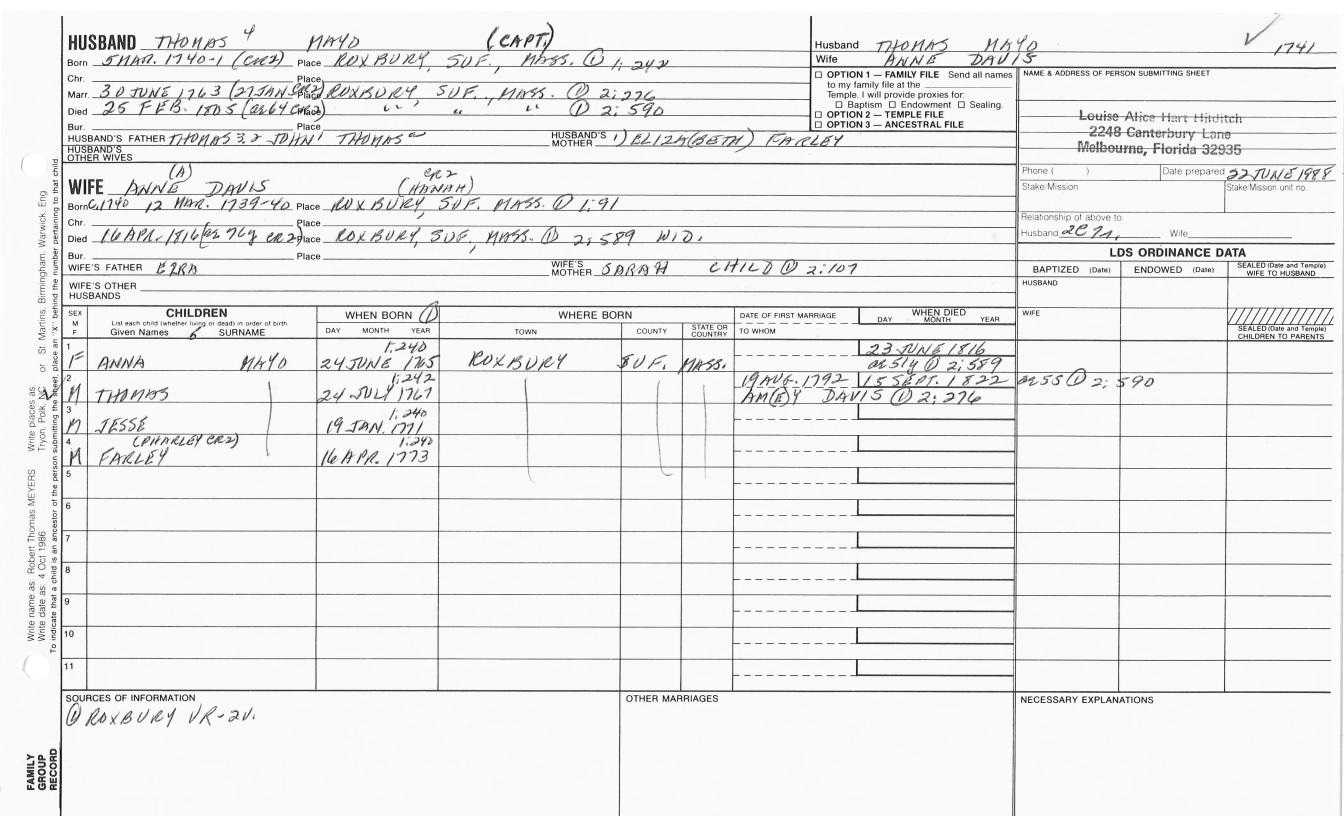 HUSBAND THOMAS 4 MAYO (CAPT.)
Born 5 MAR. 1740-1 (CR2) Place ROXBURY, SUF., MASS. ① 1:242
Chr. Place
Marr. 30 JUNE 1763 (27 JAN CR2) Place ROXBURY, SUF., MASS. ① 2:276
Died 25 FEB. 1805 (ae 64 CR2) Place " " " ① 2:590
Bur. Place
HUSBAND'S FATHER THOMAS 3,2 JOHN 1 THOMAS HUSBAND'S MOTHER 1) ELIZA(BETH) FARLEY
HUSBAND'S OTHER WIVES
Husband THOMAS MAYO 1741
Wife ANNE DAVIS
☐ OPTION 1 — FAMILY FILE Send all names
to my family file at the
Temple. I will provide proxies for:
☐ Baptism ☐ Endowment ☐ Sealing.
☐ OPTION 2 — TEMPLE FILE
☐ OPTION 3 — ANCESTRAL FILE
NAME & ADDRESS OF PERSON SUBMITTING SHEET
Louise Alice Hart Hilditch
2248 Canterbury Lane
Melbourne, Florida 32935
Phone ( ) Date prepared 22 JUNE 1988
Stake Mission Stake Mission unit no.
Relationship of above to:
Husband 2C7r. Wife
(A) CR2
WIFE ANNE DAVIS (HANAH)
Born C.1740 12 MAR. 1739-40 Place ROXBURY, SUF. MASS. ① 1:91
Chr. Place
Died 16 APR. 1816 (ae 76y CR2) Place ROXBURY, SUF., MASS. ① 2:589 WID.
Bur. Place
WIFE'S FATHER EZRA WIFE'S MOTHER SARAH CHILD ① 2:107
WIFE'S OTHER HUSBANDS
LDS ORDINANCE DATA
BAPTIZED (Date) ENDOWED (Date) SEALED (Date and Temple) WIFE TO HUSBAND
HUSBAND
WIFE
SEALED (Date and Temple) CHILDREN TO PARENTS
SEX M F
CHILDREN
List each child (whether living or dead) in order of birth
Given Names SURNAME
WHEN BORN ①
DAY MONTH YEAR
WHERE BORN
TOWN COUNTY STATE OR COUNTRY
DATE OF FIRST MARRIAGE
TO WHOM
WHEN DIED
DAY MONTH YEAR
1 1:240 23 JUNE 1816
F ANNA MAYO 24 JUNE 1765 ROXBURY SUF. MASS. ae 51y ① 2:589
2 1:242 19 AUG. 1792 15 SEPT. 1822 ae 55 ① 2:590
M THOMAS 24 JULY 1767 AM(E)Y DAVIS ① 2:276
3 1:240
M JESSE 19 JAN. 1771
4 (PHARLEY CR2) 1:240
M FARLEY 16 APR. 1773
5
6
7
8
9
10
11
SOURCES OF INFORMATION
① ROXBURY VR-2V.
OTHER MARRIAGES
NECESSARY EXPLANATIONS
Write name as: Robert Thomas MEYERS Write places as: Tryon, Polk, NC or St. Martins, Birmingham, Warwick, Eng
Write date as: 4 Oct 1986
To indicate that a child is an ancestor of the person submitting the sheet, place an "X" behind the number pertaining to that child
FAMILY
GROUP
RECORD